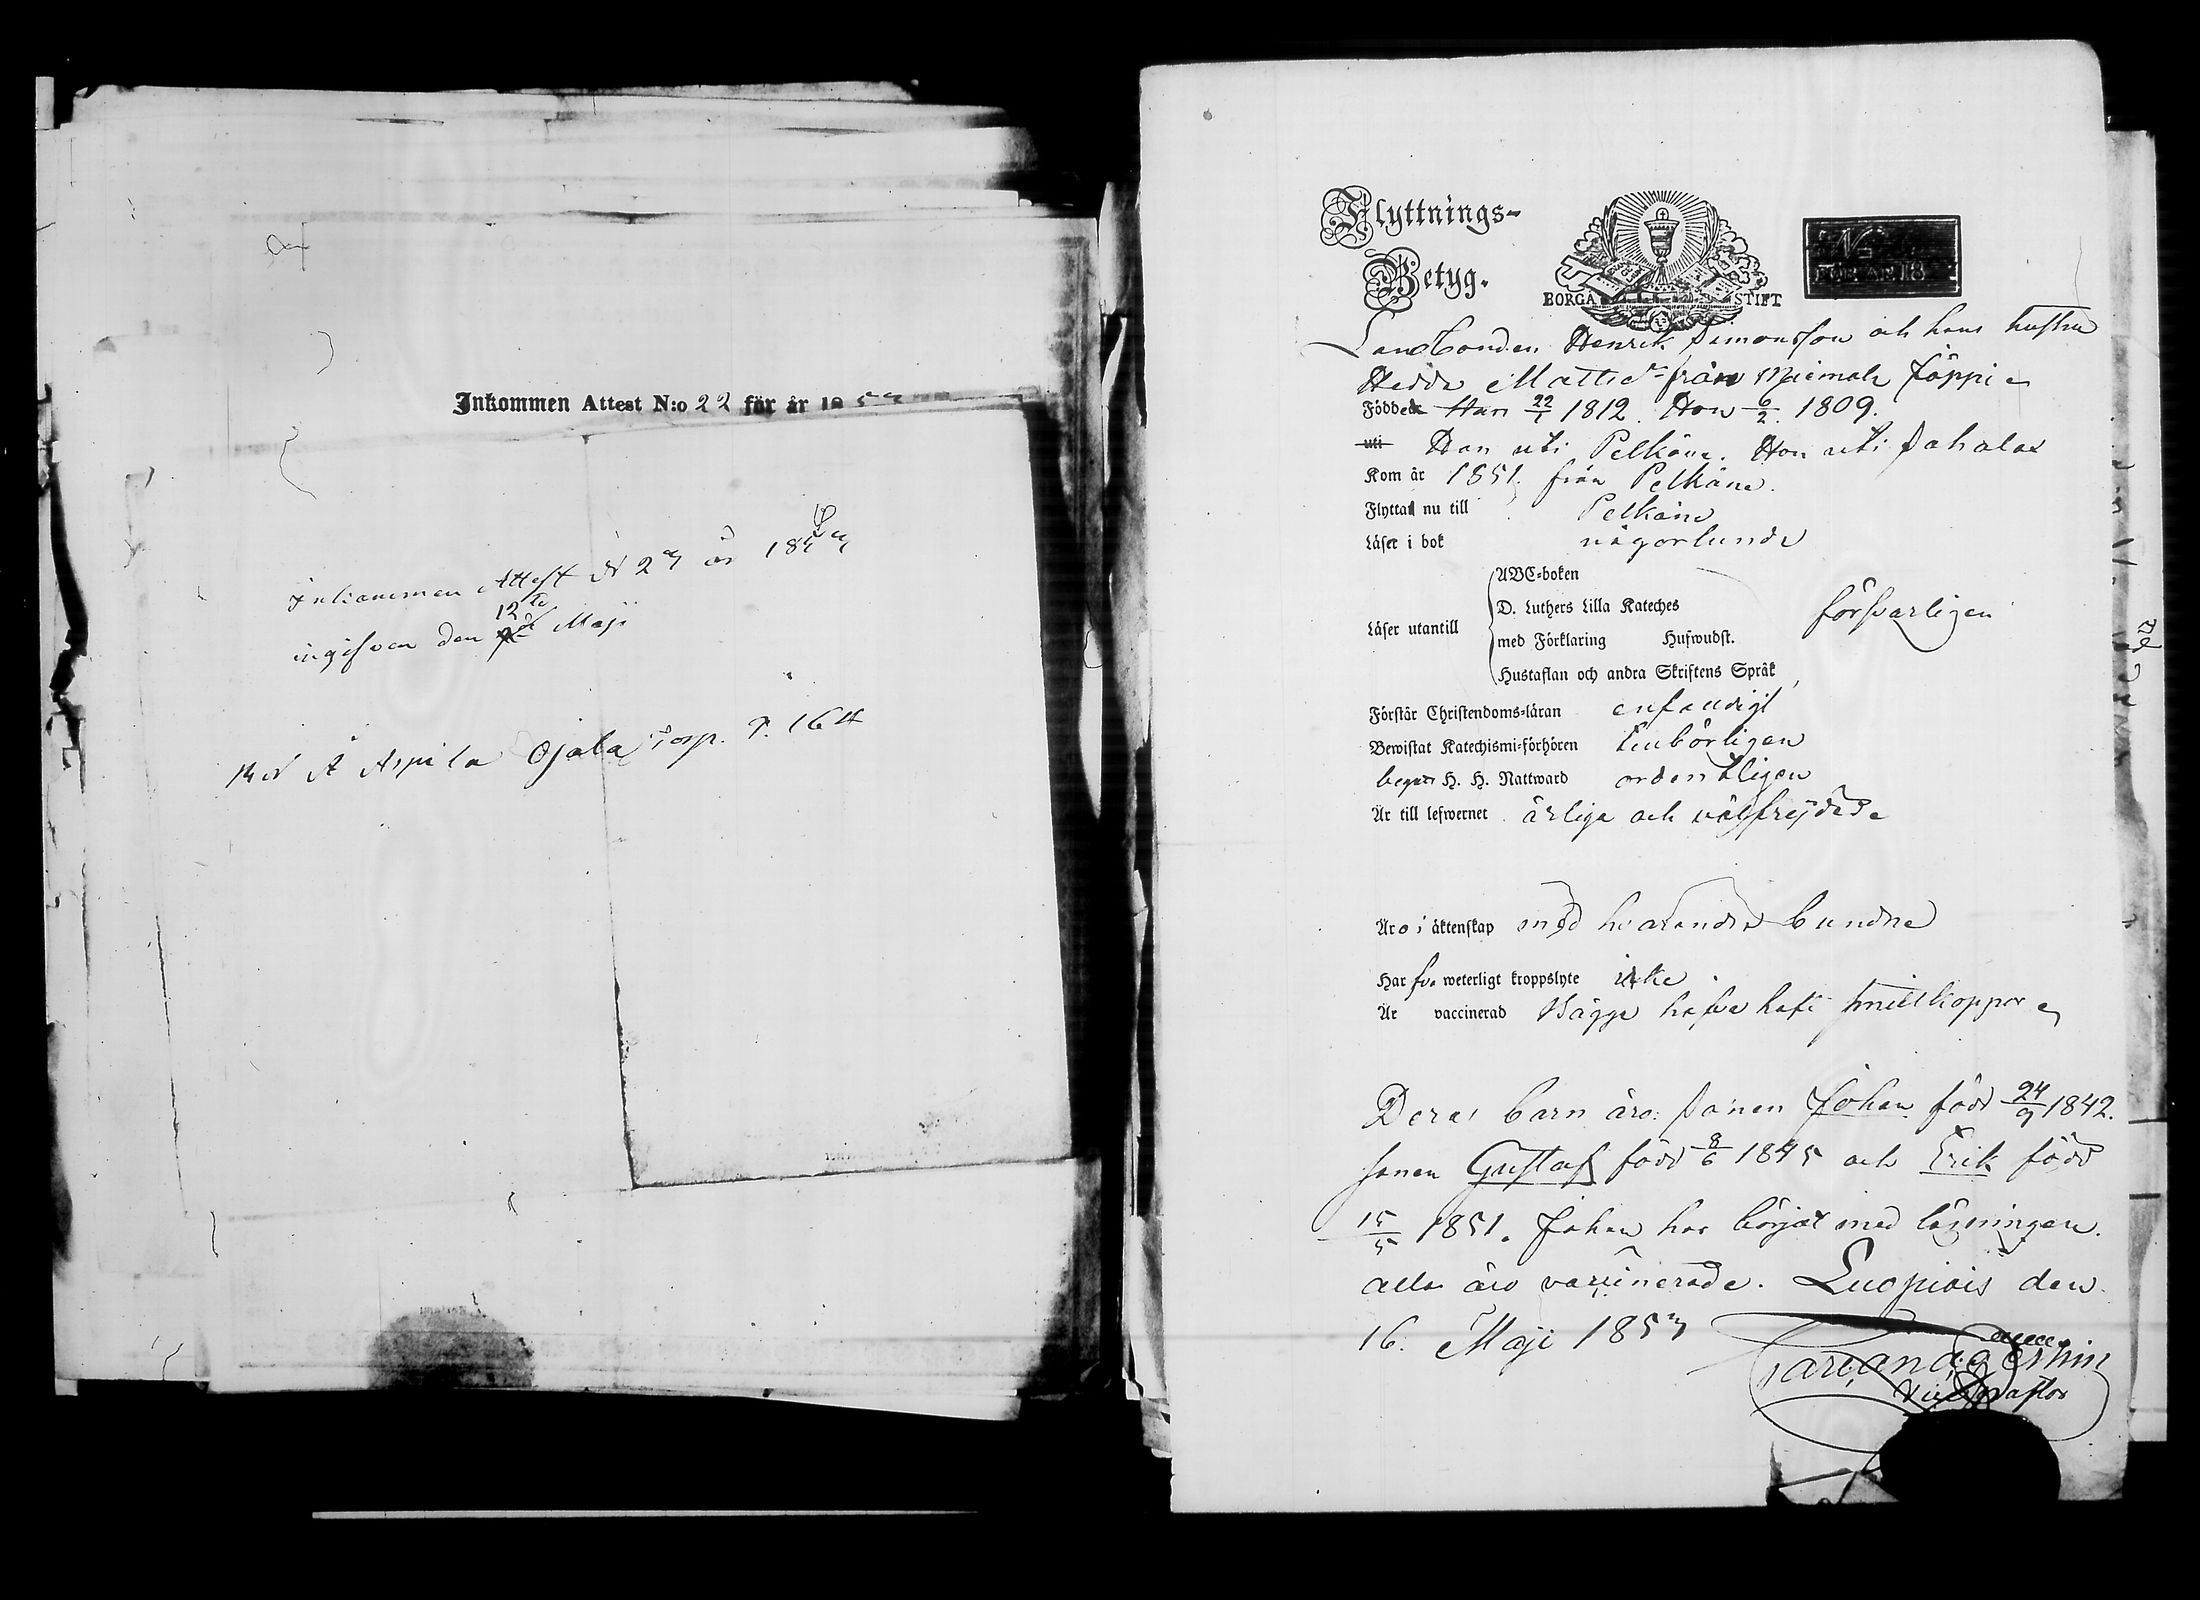 Inkommen Attest N:o 22 för år 1853
Inkommen Attest N 23 år 1853
ingifven den 12te Maji
Ojala Torp. P. 164
Flyttnings-
Betyg.
BORGÅ STIFT
N
FÖR ÅR 18
Landbonden Henrik Simonsson och hans hustru
Hedda Mattsdr från Miemola Jöppi
Födde Han 22/1 1812. Hon 6/2 1809.
uti Han uti Pelkäne. Hon uti Sahalax
Kom år 1851. från Pelkäne.
Flytta nu till Pelkäne
Läser i bok någorlunda
ABC-boken
D. Luthers Lilla Kateches
Läser utantill försvarligen
med Förklaring Hufwudst.
Hustaflan och andra Skriftens Språk
Förstår Christendoms-läran enfaldigt
Bewistat Katechismi-förhören tillbörligen
begått H. H. Nattward ordentligen
Är till lefwernet ärliga och välfrejdade
Äro i äktenskap med hvarandra bundne
Har fva weterligt kroppslyte icke
Är vaccinerad Bägge hafva haft smittkoppor
Deras barn äro: Sonen Johan född 24/9 1842.
Sonen Gustaf född 8/6 1845 och Erik född
15/5 1851. Johan har börjat med läsningen.
alla äro vaccinerade. Luopiois den
16. Maji 1853
Vice pastor